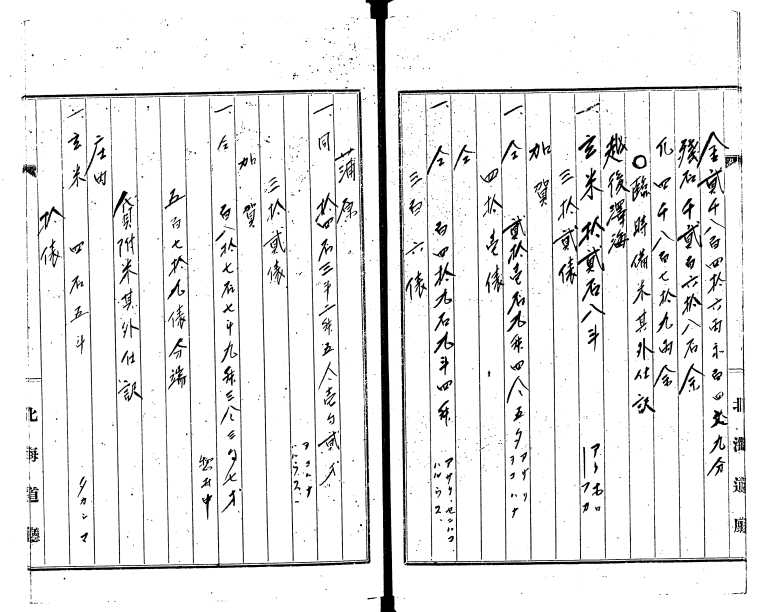 金貳千八百四拾六両永百四拾九分
残石千貳百六拾八石余
代四千八百七拾九両余
○臨時備米其外仕訳
越後澤海
一、玄米拾貳石八斗
三拾貳俵
加賀
一、仝 貳拾壱石九升四八五夕
四拾壱俵
仝
一、仝 百四拾九石九斗四升
三百六俵
北海道廳
蒲原
一、同 拾四石三斗二升五合壱勺貳才
三拾貳俵
加賀
一、仝 百八拾七石七斗九升三合三勺七才
五百七拾九俵分端
貸附米其外仕訳
庄内
一、玄米 四石五斗 タカシマ
拾俵
北海道廳